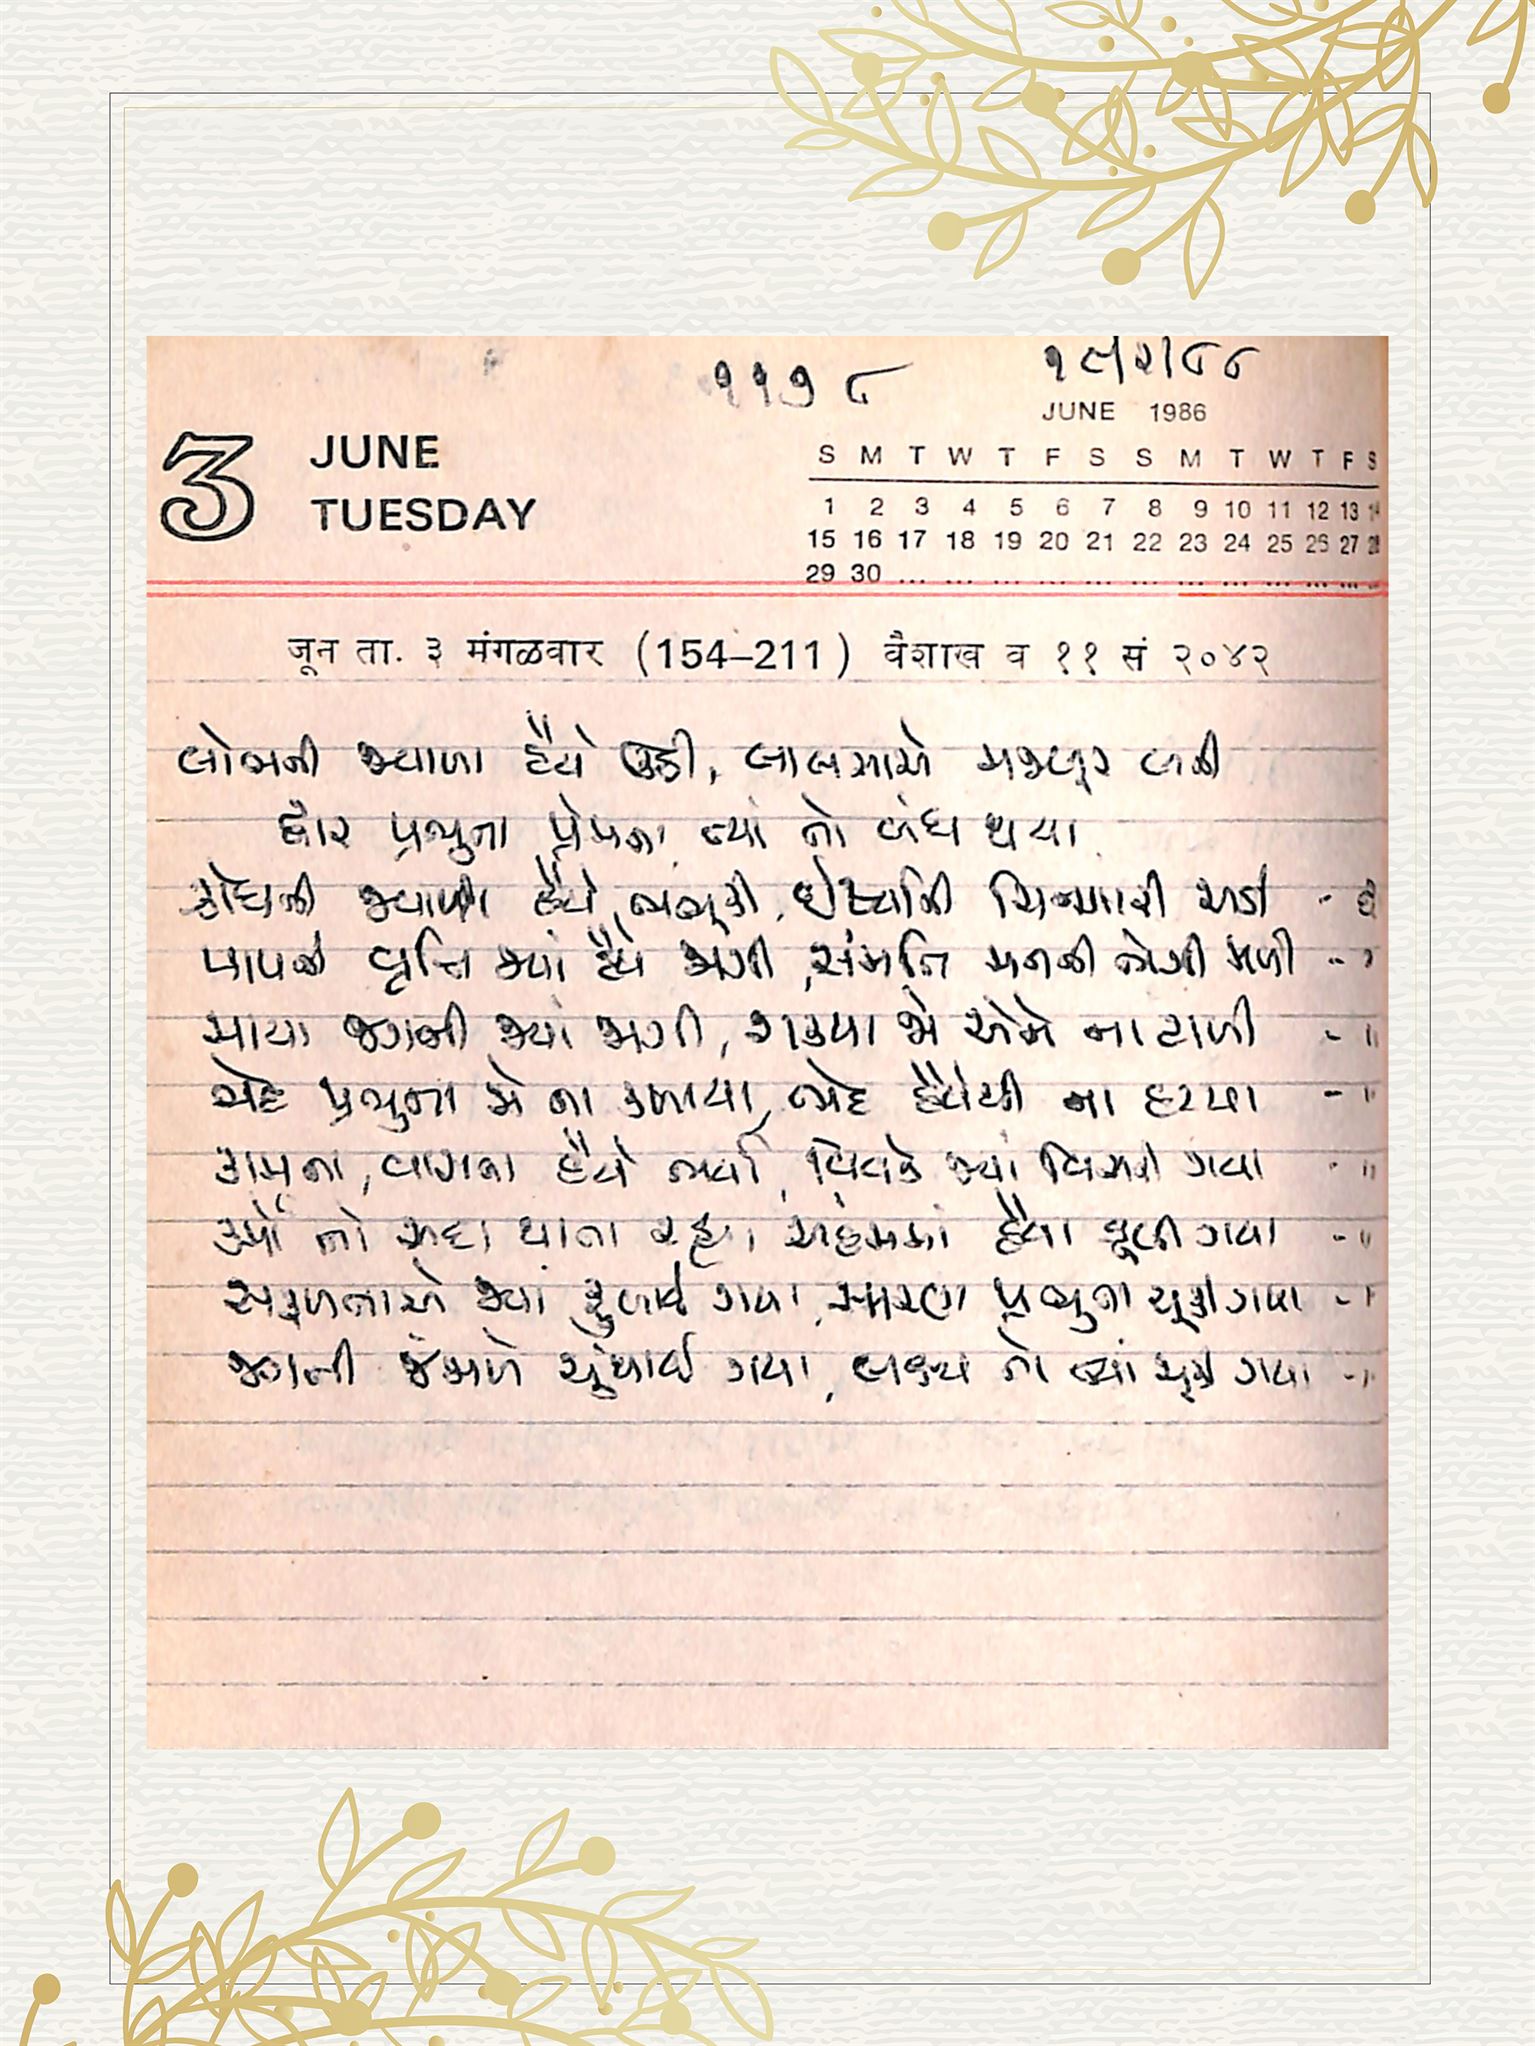 ૧૧૭૮
૧૯/૨/૮૮
JUNE 1986
3 JUNE
TUESDAY
S M T W T F S S M T W T F S
1 2 3 4 5 6 7 8 9 10 11 12 13 14
15 16 17 18 19 20 21 22 23 24 25 26 27 28
29 30 ... ... ... ... ... ... ... ... ... ... ... ...
जून ता. ३ मंगळवार (154–211) वैशाख व ११ सं २०४२
લોભની જ્વાળા હૈયે ઊઠી, લાલસાએ મજબૂર બની
દ્વાર પ્રભુના પ્રેમના ત્યાં તો બંધ થયા
ક્રોધની જ્વાળા હૈયે ભભૂકી, ઈર્ષ્યાની ચિનગારી અડી - દ્વાર
પાપની વૃત્તિ જ્યાં હૈયે જાગી, સંમતિ મનની ભેગી મળી - "
માયા જગની જ્યાં જાગી, શક્યા જો એને ના ટાળી - "
ભેદ પ્રભુના જો ના કળાયા, ભેદ હૈયેથી ના હટયા - "
કામના, વાસના હૈયે ભર્યા, વિવેક જ્યાં વિસરી ગયા - "
કર્મો તો સદા થાતા રહ્યા અહંમમાં હૈયા ડૂબી ગયા - "
સફળતાએ જ્યાં ફુલાઈ ગયા, સ્મરણ પ્રભુના ચૂકી ગયા - "
જગની જંજાળે ગૂંથાઈ ગયા, લક્ષ્ય તો ત્યાં ચૂકી ગયા - "